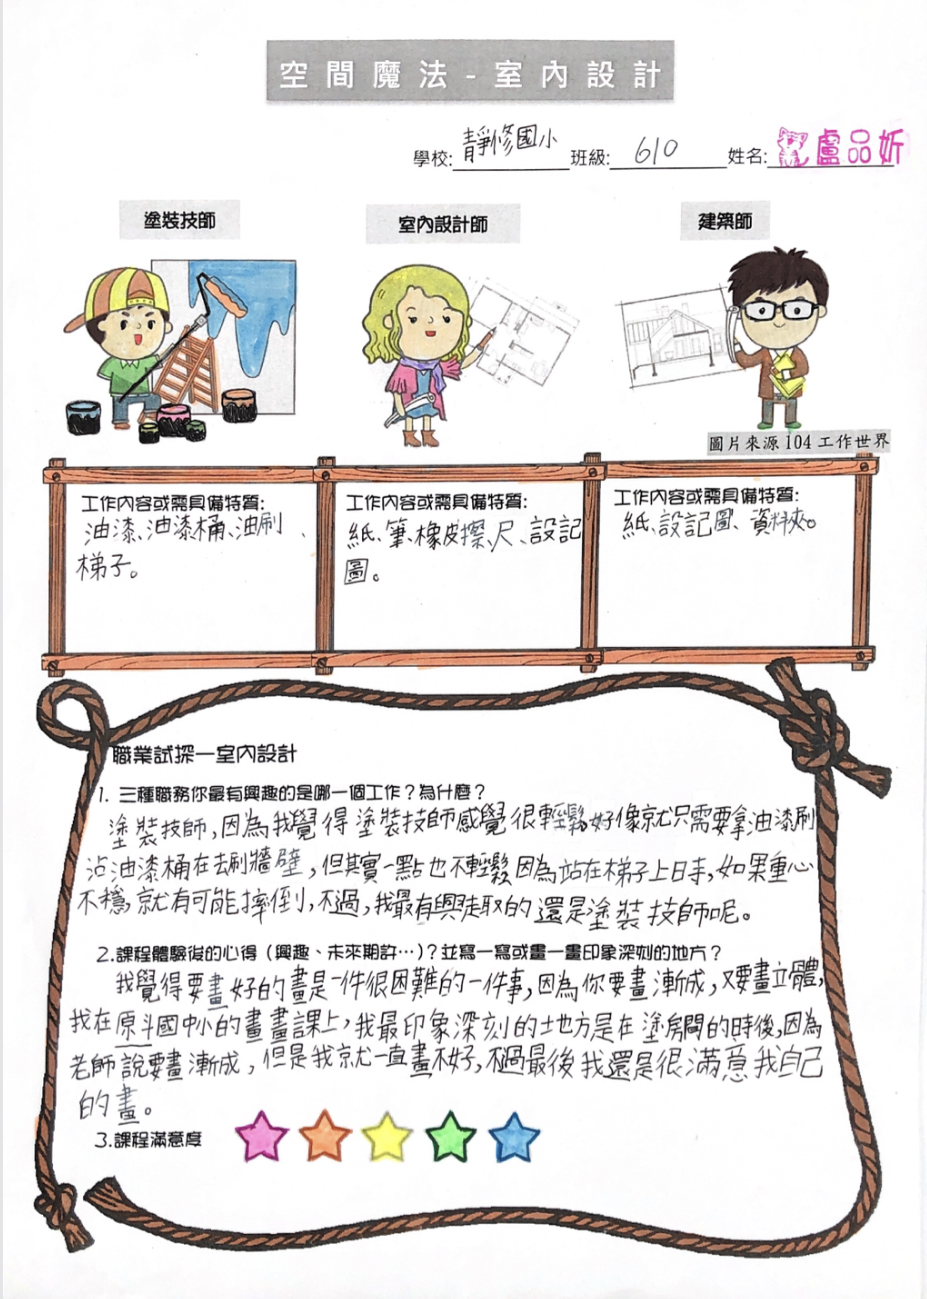 空間魔法-室內設計
學校:靜修國小 班級:610 姓名:盧品妡
塗裝技師
室內設計師
建築師
圖片來源104工作世界
工作內容或需具備特質:
油漆、油漆桶、油刷、
梯子。
工作內容或需具備特質:
紙、筆、橡皮擦、尺、設記
圖。
工作內容或需具備特質:
紙、設記圖、資料夾。
職業試探—室內設計
1. 三種職務你最有興趣的是哪一個工作？為什麼？
塗裝技師,因為我覺得塗裝技師感覺很輕鬆好像就只需要拿油漆刷
沾油漆桶在去刷牆壁,但其實一點也不輕鬆因為站在梯子上時,如果重心
不穩就有可能摔倒,不過,我最有興趣的還是塗裝技師呢。
2.課程體驗後的心得（興趣、未來期許…）？並寫一寫或畫一畫印象深刻的地方？
我覺得要畫好的畫是一件很困難的一件事,因為你要畫漸成,又要畫立體,
我在原斗國中小的畫畫課上,我最印象深刻的地方是在塗房間的時後,因為
老師說要畫漸成,但是我就一直畫不好,不過最後我還是很滿意我自己
的畫。
3.課程滿意度